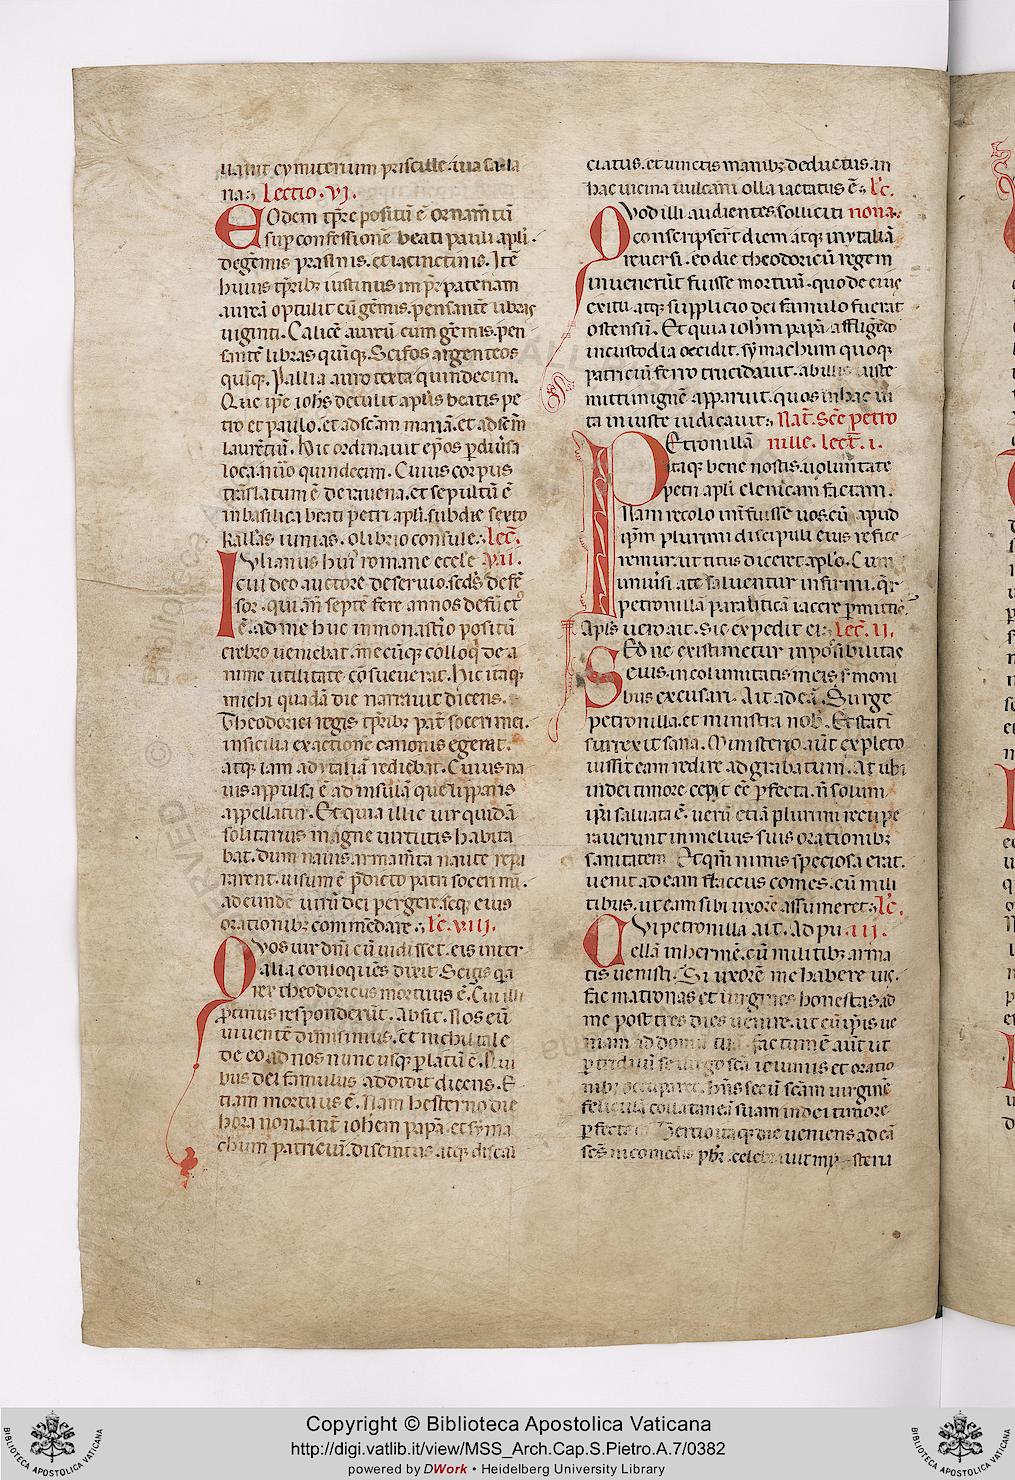 uauit cymiterium priscille uia sala
ria. Lectio. VI.
Eodem tp̄re positū ē ornam̄tū
sup confessionē beati pauli apl̄i.
de gēmis prasinis. et iacinctinis. Itē
huius tp̄ribꝫ iustinus imp̄r patenam
aureā optulit cū gēmis. pensantē libras
uiginti. Calicē aureū cum gēmis. pen
santē libras quinqꝫ. Scifos argenteos
quīqꝫ. Pallia auro texta quindecim.
Que ip̄e ioh̄s detulit apl̄is beatis pe
tro et paulo. et ad sc̄am mariā. et ad sc̄m̄
laurētiū. Hic ordinauit ep̄os p̱ diu̾sa
loca. nūo quindecim. Cuius corpus
traslatum ē de rauena. et sepultū ē
in basilica beati petri apl̄i. sub die sexto
kall̄as iunias. olibrio consule. Lec̄.
Iulianus hui᾽ romane eccl̄e VII.
cui deo auctore deseruio. sc̄ds defē
sor. qui añ septē fere annos defūct᾽
ē. ad me huc in monast̾io positū
crebro ueniebat. mecūqꝫ colloqͥ de a
nime utilitate cōsueuerat. Hic itaqꝫ
michi quadā die narrauit dicens.
Theodorici regis tp̄ribꝫ pat̾ soceri mei.
in sicilia exactionē canonis egerat.
atqꝫ iam ad ytaliā rediebat. Cuius na
uis appulsa ē ad insulā que lipparis
appellatur. Et quia illic uir quidā
solitarius magne uirtutis habita
bat. dum nauis armam̄ta naute repa
rarent. uisum ē p̄dicto patri soceri mī.
ad eundē uirū dei pergere. seqꝫ eius
orationibꝫ commēdare. Lc̄. VIII.
Quos uir dn̄i cū uidisset. eis inter
alia conloquēs dixit. Scitis qͥa
rex theodoricus mortuus ē. Cui illi
p̱tinus respondert̄. Absit. Nos eū
uiuentē dimisimus. et nichil tale
de eo. ad nos nunc usqꝫ p̱latū ē. Qui
bus dei famulus addidit dicens. E
tiam mortuus ē. Nam hesterno die
hora nona. int̾ iohem papā. et syma
chum patriciū. discinctus. atqꝫ discal
ciatus. et uinctis manibꝫ deductus. in
hac uicina uulcani olla iactatus ē. Lc̄.
Quod illi audientes. solliciti nona.
conscripser̄t diem. atqꝫ in ytaliā
reuersi. eo die theodoricū regem
inuenerūt fuisse mortuū. quo de eius
exitu. atqꝫ supplicio dei famulo fuerat
ostensū. Et quia ioh̄m papā affligēdo
in custodia occidit. symachum quoqꝫ
patriciū ferro trucidauit. ab illis iuste
mitti in ignē apparuit. quos in hac ui
ta iniuste iudicauit. Nat̄. Sc̄e petro
Petronillā nille. Lect̄. I.
itaqꝫ bene nostis. uoluntate
petri apl̄i clenicam factam.
Nam recolo int̾fuisse uos. cū apud
ip̄m plurimi discipuli eius refice
remur. ut titus diceret apl̄o. Cum
uniu̾si. a te saluentur infirmi. qͣr
petronillā paraliticā iacere p̱mittis?
Apl̄s uero ait. Sic expedit ei. Lec̄. II.
Sed ne existimetur inpos̾ibilitas
eius. incolumitatis meis s̾moni
bus excusari. Ait ad eā. Surge
petronilla. et ministra nob̾. Et statī
surrexit sana. Ministerio aūt expleto
iussit eam redire ad grabatum. At ubi
in dei timore cepit eē p̱fecta. n̄ solum
ip̄a saluata ē. uerū etiā plurimi recupe
rauerunt in melius suis orationibꝫ
sanitatem. Et qm̄ nimis speciosa erat.
uenit ad eam flaccus comes. cū mili
tibus. ut eam sibi uxorē assumeret. Lc̄.
Cui petronilla ait. Ad pu III.
cellā inhermē. cū militibꝫ arma
tis uenisti. Si uxorē me habere uis.
fac matronas et uirgines honestas ad
me post tres dies uenire. ut cū ip̄is ue
niam ad domū tuā. factum ē aūt ut
p̱ triduū se uirgo sc̄a ieiuniis et oratio
nibꝫ occuparet. hn̄s secū sc̄am uirginē
feliculā collactaneā suam in dei timore
p̱fectā. Tertio itaqꝫ die ueniens ad eā
sc̄s nicomedis pb̄r. celebrauit mysteria
Copyright © Biblioteca Apostolica Vaticana
http://digi.vatlib.it/view/MSS_Arch.Cap.S.Pietro.A.7/0382
powered by DWork • Heidelberg University Library
BIBLIOTECA APOSTOLICA VATICANA
BIBLIOTECA APOSTOLICA VATICANA